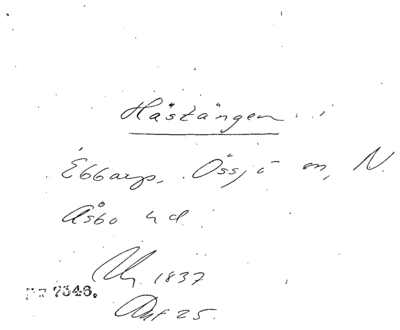 Hästängen i
Ebbarp, Össjö sn, N.
Åsbo hd.
1837
7346.
Akt 25.